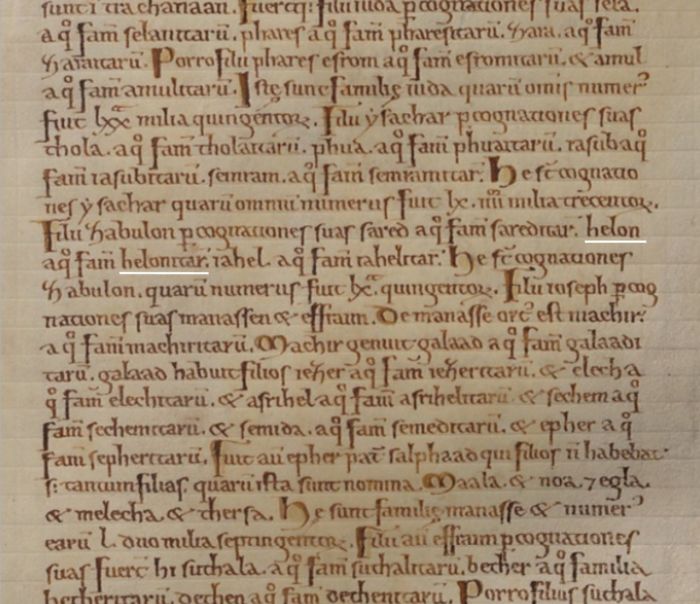 sunt ī tra chanaan. Fuerq; filii iuda ꝑ cognationes suas sela.
a q̊ fam̄ selanitarū. phares a q̊ fam̄ pharesitarū. zara. a q̊ fam̄
zaraitarū. Porro filii phares esrom a q̊ fam̄ esromitarū. & amul
a q̊ fam̄ amulitarū. Iste sunt familię iuda quarū om̄is numer᾽
fuit lxx milia quingentoꝝ. Filii ysachar ꝑ cognationes suas
thola. a q̊ fam̄ tholaitarū. phua. a q̊ fam̄ phuaitarū. iasub a q̊
fam̄ iasubitarū. semram. a q̊ fam̄ semranitar᾽. He s̄t cognatio
nes ysachar quarū om̄iū numerus fuit lx. iiii milia trecentoꝝ.
Filii zabulon ꝑ cognationes suas sared a q̊ fam̄ sareditar᾽. helon
a q̊ fam̄ helonitar᾽. iahel. a q̊ fam̄ iahelitar᾽. He s̄t cognationes
zabulon. quarū numerus fuit lx. quingentoꝝ. Filii ioseph ꝑ cog
nationes suas manassen & effraim. De manasse ort᾽ est machir᾽
a q̊ fam̄ machiritarū. Machir genuit galaad a q̊ fam̄ galaadi
tarū. galaad habuit filios iezer a q̊ fam̄ iezeritarū. & elech a
q̊ fam̄ elechitarū. & asrihel a q̊ fam̄ asrihelitarū. & sechem a q̊
fam̄ sechemitarū. & semida. a q̊ fam̄ semeditarū. & epher a q̊
fam̄ sepheritarū. Fuit aū epher pat̄ salphaad qui filios n̄ habebat
s; tantum filias. quarū ista sunt nomina. Maala. & noa. ⁊ egla.
& melcha. & thersa. He sunt familię manasse & numer᾽
earū l. duo milia septingentoꝝ. Filii aū effraim ꝑ cognationes
suas fuerꞇ hi suthala. a q̊ fam̄ suthalitarū. becher a q̊ familia
becheritarū. dechen a q̊ fam̄ dechenitarū. Porro filius suthala